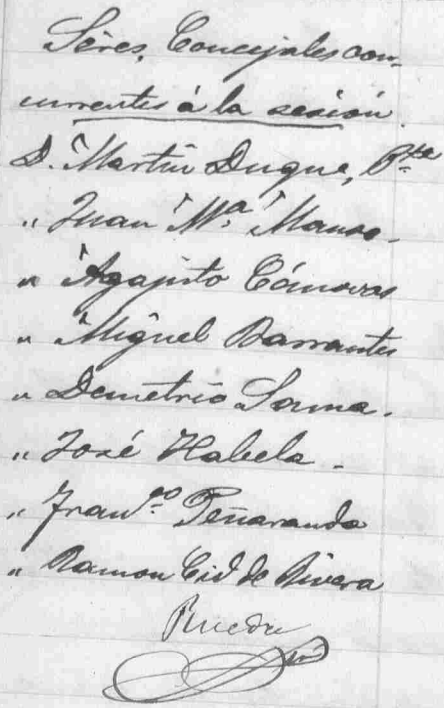 Sêres, Concejales con-
currentes á la sesión.
D. Martin Duque, Pte
" Juan Mª Manso.
" Agapito Cánovas
" Miguel Barrantes
" Demetrio
" José Habela.
" Franco. Peñaranda
" Ramon Cid de Rivera
Rueda